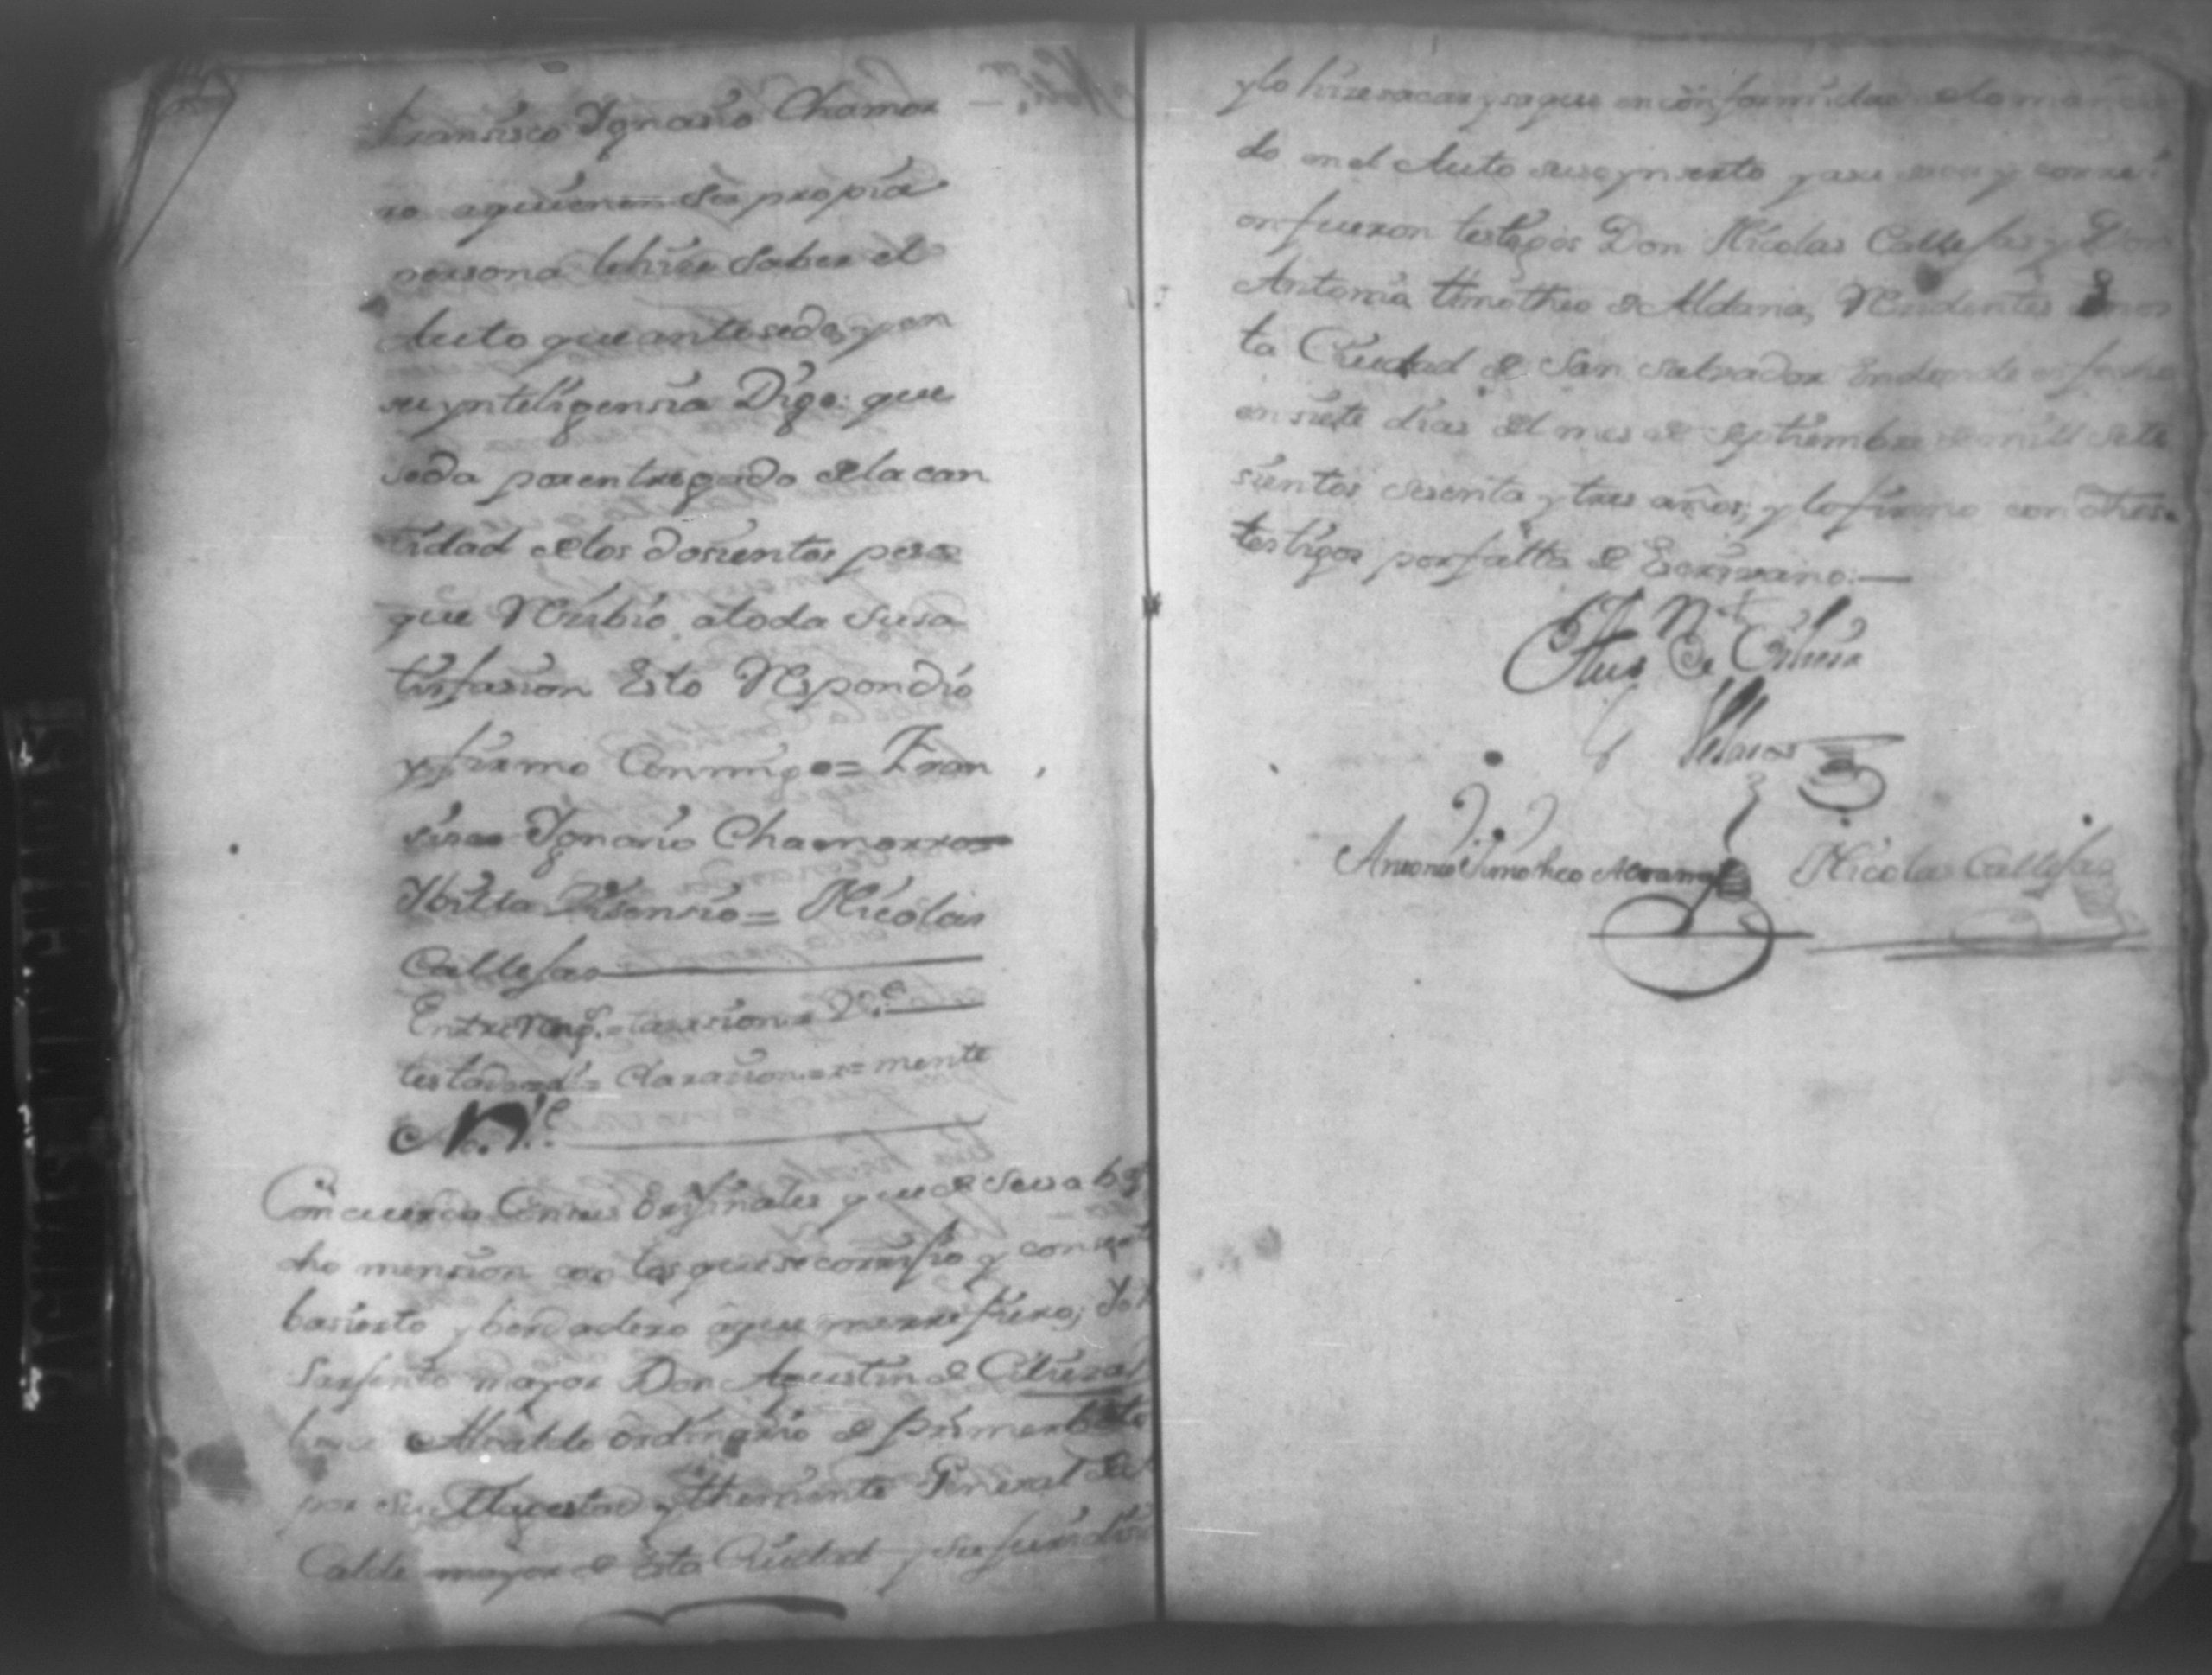 Fransisco Ygnasio Chamor
ro aquien en su propia
persona lehize saber el
Auto que antesede, y en
su ynteligensia Dijo: que
seda por entregado de la can
tidad de los dosientos pesos
que Resibio atoda su sa
tisfasion Esto Respondio
y firmo Conmigo = Fran
sisco Ygnasio Chamorro
Billa = Nicolas
Callejas
Entre Reng.s =
testado = clarasion = = mente
No. V.e
Concuerda Con sus Originales que de suso ba
cho mension con los que se corrijio y consert
ba sierto y berdadero aque me refiero; Yo el
Sarjento mayor Don Agustin de
Alcalde ordinario de primer boto
por su Magestad y theniente General de
Calde mayor de Esta Ciudad y su jurisdisi
y lo hize sacar y saque en conformidad de lo manda
do en el Auto suso ynserto y asu saca y correxi
on fueron testigos Don Nicolas Callejas y Don
Antonio timotheo de Aldana, Residentes en es
ta Ciudad de San Salvador Endonde es fecho
en siete dias del mes de Septiembre de mill sete
sientos sesenta y tres años; y lo firmo con dhos.
testigos por falta de Escrivano.
Antonio Timotheo Nicolas Callejas